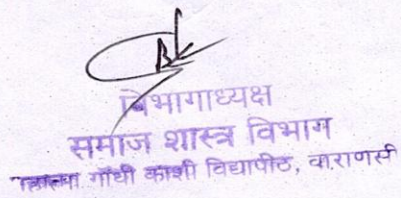 विभागाध्यक्ष
समाज शास्त्र विभाग
गाँधी काशी विद्यापीठ, वाराणसी